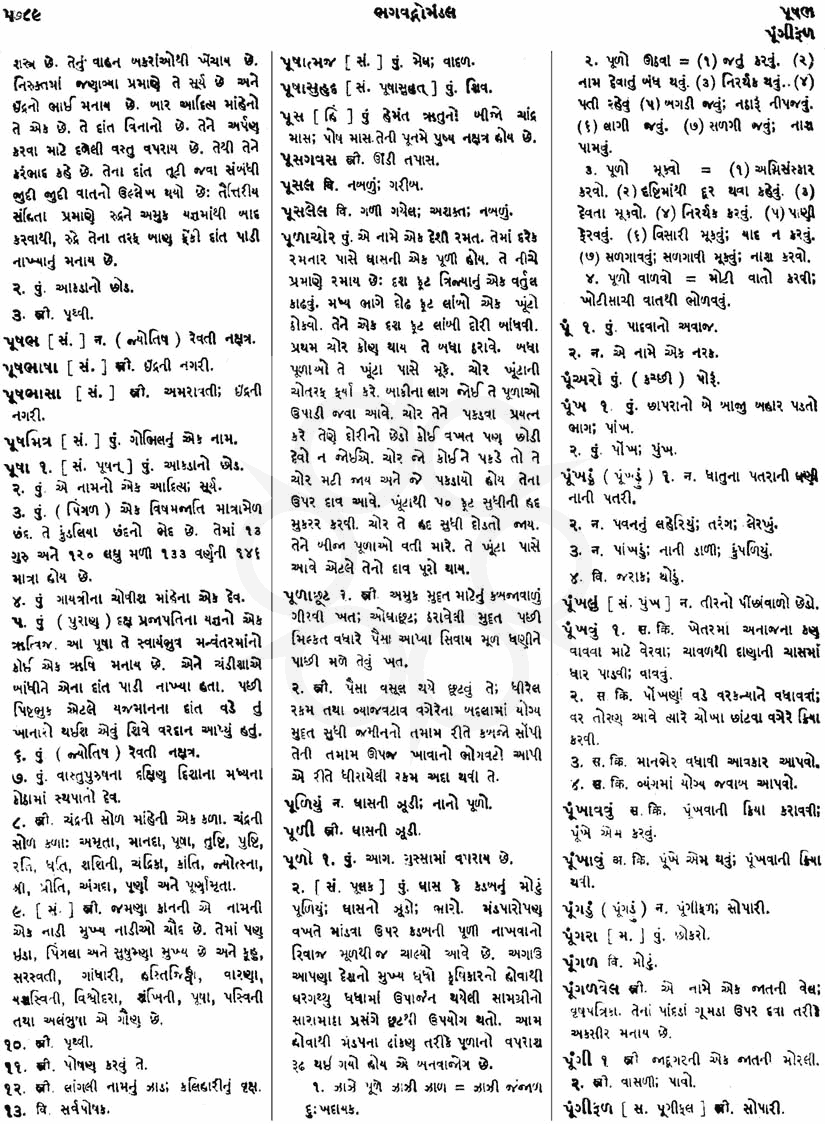 ૫૭૮૯
ભગવદ્ગોમંડલ
પૂષભ
પૂંગીફળ
શસ્ત્ર છે. તેનું વાહન બકરાંઓથી ખેંચાય છે.
નિરુક્તમાં જણાવ્યા પ્રમાણે તે સૂર્ય છે અને
ઇંદ્રનો ભાઈ મનાય છે. બાર આદિત્ય માંહેનો
તે એક છે. તે દાંત વિનાનો છે. તેને અર્પણ
કરવા માટે દળેલી વસ્તુ વપરાય છે. તેથી તેને
કરંભાદ કહે છે. તેના દાંત તૂટી જવા સંબંધી
જુદી જુદી વાતનો ઉલ્લેખ થયો છેઃ તૈત્તરીય
સંહિતા પ્રમાણે રુદ્રને અમુક યજ્ઞમાંથી બાદ
કરવાથી, રુદ્રે તેના તરફ બાણ ફેંકી દાંત પાડી
નાખ્યાનું મનાય છે.
૨. પું. આકડાનો છોડ.
૩. સ્ત્રી. પૃથ્વી.
પૂષભ [ સં. ] ન. ( જ્યોતિષ ) રેવતી નક્ષત્ર.
પૂષભાષા [ સં. ] સ્ત્રી. ઇંદ્રની નગરી.
પૂષભાસા [ સં. ] સ્ત્રી. અમરાવતી; ઇંદ્રની
નગરી.
પૂષમિત્ર [ સં. ] પું. ગોભિલનું એક નામ.
પૂષા ૧. [ સં. પૂષન્ ] પું. આકડાનો છોડ.
૨. પું. એ નામનો એક આદિત્ય; સૂર્ય.
૩. પું. ( પિંગળ ) એક વિષમજાતિ માત્રામેળ
છંદ. તે કુંડલિયા છંદનો ભેદ છે. તેમાં ૧૩
ગુરુ અને ૧૨૦ લઘુ મળી ૧૩૩ વર્ણની ૧૪૬
માત્રા હોય છે.
૪. પું ગાયત્રીના ચોવીશ માંહેના એક દેવ.
૫. પું ( પુરાણ ) દક્ષ પ્રજાપતિના યજ્ઞનો એક
ઋત્વિજ. આ પૂષા તે સ્વાયંભુવ મન્વંતરમાંનો
કોઈ એક ઋષિ મનાય છે. એને ચંડીશ્વાએ
બાંધીને એના દાંત પાડી નાખ્યા હતા. પછી
પિષ્ટભુક એટલે યજમાનના દાંત વડે તું
ખાનારો થઈશ એવું શિવે વરદાન આપ્યું હતું.
૬. પું ( જ્યોતિષ ) રેવતી નક્ષત્ર.
૭. પું. વાસ્તુપુરુષના દક્ષિણ દિશાના મધ્યના
કોઠામાં સ્થપાતો દેવ.
૮. સ્ત્રી. ચંદ્રની સોળ માંહેની એક કળા. ચંદ્રની
સોળ કળાઃ અમૃતા, માનદા, પૂષા, તુષ્ટિ, પુષ્ટિ,
રતિ, ધૃતિ, શશિની, ચંદ્રિકા, કાંતિ, જ્યોત્સ્ના,
શ્રી, પ્રીતિ, અંગદા, પૂર્ણા અને પૂર્ણામૃતા.
૯. [ સં. ] સ્ત્રી. જમણા કાનની એ નામની
એક નાડી મુખ્ય નાડીઓ ચૌદ છે. તેમાં પણ
ઇડા, પિંગલા અને સુષુમ્ણા મુખ્ય છે અને કુહૂ,
સરસ્વતી, ગાંધારી, હસ્તિજિહ્વા, વારણા,
યશસ્વિની, વિશ્વોદરા, શંખિની, પૂષા, પસ્વિની
તથા અલંભુષા એ ગૌણ છે.
૧૦. સ્ત્રી. પૃથ્વી.
૧૧. સ્ત્રી. પોષણ કરવું તે.
૧૨. સ્ત્રી. લાંગલી નામનું ઝાડ; કલિહારીનું વૃક્ષ.
૧૩. વિ. સર્વપોષક.
પૂષાત્મજ [ સં. ] પું. મેઘ; વાદળ.
પૂષાસુહૃદ [ સં. પૂષાસુહૃત્ ] પું. શિવ.
પૂસ [ હિં ] પું હેમંત ઋતુનો બીજો ચાંદ્ર
માસ; પોષ માસ. તેની પૂનમે પુષ્ય નક્ષત્ર હોય છે.
પૂસગવસ સ્ત્રી. ઊંડી તપાસ.
પૂસલ વિ. નબળું; ગરીબ.
પૂસલેલ વિ. ગળી ગયેલ; અશક્ત; નબળું.
પૂળાચોર પું. એ નામે એક દેશી રમત. તેમાં દરેક
રમનાર પાસે ઘાસની એક પૂળી હોય. તે નીચે
પ્રમાણે રમાય છેઃ દશ ફૂટ ત્રિજ્યાનું એક વર્તુલ
કાઢવું. મધ્ય ભાગે દોઢ ફૂટ લાંબો એક ખૂંટો
ઠોકવો. તેને એક દશ ફૂટ લાંબી દોરી બાંધવી.
પ્રથમ ચોર કોણ થાય તે બધા ઠરાવે. બધા
પૂળાઓ તે ખૂંટા પાસે મૂકે. ચોર ખૂંટાની
ચોતરફ ફર્યા કરે. બાકીના લાગ જોઈ તે પૂળાઓ
ઉપાડી જવા આવે. ચોર તેને પકડવા પ્રયત્ન
કરે તેણે દોરીનો છેડો કોઈ વખત પણ છોડી
દેવો ન જોઈએ. ચોર જો કોઈને પકડે તો તે
ચોર મટી જાય અને જે પકડાયો હોય તેના
ઉપર દાવ આવે. ખૂંટાથી ૫૦ ફૂટ સુધીની હદ
મુકરર કરવી. ચોર તે હદ સુધી દોડતો જાય.
તેને બીજા પૂળાઓ વતી મારે. તે ખૂંટા પાસે
આવે એટલે તેનો દાવ પૂરો થાય.
પૂળાછૂટ ૧. સ્ત્રી. અમુક મુદ્દત માટેનું કબજાવાળું
ગીરવી ખત; ઓધાછૂટ; ઠરાવેલી મુદ્દત પછી
મિલ્કત વધારે પૈસા આપ્યા સિવાય મૂળ ધણીને
પાછી મળે તેવું ખત.
૨. સ્ત્રી. પૈસા વસૂલ થયે છૂટવું તે; ધીરેલ
રકમ તથા વ્યાજવટાવ વગેરેના બદલામાં યોગ્ય
મુદ્દત સુધી જમીનનો તમામ રીતે કબજો સોંપી
તેની તમામ ઊપજ ખાવાનો ભોગવટો આપી
એ રીતે ધીરાયેલી રકમ અદા થવી તે.
પૂળિયું ન. ઘાસની ઝૂડી; નાનો પૂળો.
પૂળી સ્ત્રી. ઘાસની ઝૂડી.
પૂળો ૧. પું. આગ. ગુસ્સામાં વપરાય છે.
૨. [ સં. પૂલક ] પું. ઘાસ કે કડબનું મોટું
પૂળિયું; ઘાસનો ઝૂડો; ભારો. મંડપારોપણ
વખતે માંડવા ઉપર કડબની પૂળી નાખવાનો
રિવાજ મૂળથીજ ચાલ્યો આવે છે. અગાઉ
આપણા દેશનો મુખ્ય ધંધો કૃષિકારનો હોવાથી
ઘરગથ્થુ ધંધામાં ઉપાર્જન થયેલી સામગ્રીનો
સારામાઠા પ્રસંગે છૂટથી ઉપયોગ થતો. આમ
હોવાથી મંડપના ઢાંકણ તરીકે પૂળાનો વપરાશ
રૂઢ થઈ ગયો હોય એ બનવાજોગ છે.
૧. ઝાઝે પૂળે ઝાઝી ઝાળ = ઝાઝી જંજાળ
દુઃખદાયક.
૨. પૂળો ઊઠવા = (૧) જતું કરવું. (૨)
નામ દેવાતું બંધ થવું. (૩) નિરર્થક થવું. (૪)
પતી રહેવું (૫) બગડી જવું; નઠારું નીપજવું.
(૬) લાગી જવું. (૭) સળગી જવું; નાશ
પામવું.
૩. પૂળો મૂકવો = (૧) અગ્નિસંસ્કાર
કરવો. (૨) દૃષ્ટિમાંથી દૂર થવા કહેવું. (૩)
દેવતા મૂકવો. (૪) નિરર્થક કરવું. (૫) પાણી
ફેરવવું. (૬) વિસારી મૂકવું; યાદ ન કરવું.
(૭) સળગાવવું; સળગાવી મૂકવું; નાશ કરવો.
૪. પૂળો વાળવો = મોટી વાતો કરવી;
ખોટીસાચી વાતથી ભોળવવું.
પૂં ૧. પું. પાદવાનો અવાજ.
૨. ન. એ નામે એક નરક.
પૂંઅરો પું. ( કચ્છી ) પોરું.
પૂંખ ૧. પું. છાપરાનો બે બાજુ બહાર પડતો
ભાગ; પાંખ.
૨. પું. પોંખ; પુંખ.
પૂંખડું ( પૂંખડું ) ૧. ન. ધાતુના પતરાની ઘણી
નાની પતરી.
૨. ન. પવનનું લહેરિયું; તરંગ; લેરખું.
૩. ન. પાંખડું; નાની ડાળી; કુંપળિયું.
૪. વિ. જરાક; થોડું.
પૂંખલું [ સં. પુંખ ] ન. તીરનો પીંછાંવાળો છેડો.
પૂંખવું ૧. સ. ક્રિ. ખેતરમાં અનાજના કણ
વાવવા માટે વેરવા; ચાવળથી દાણાની ચાસમાં
ધાર પાડવી; વાવવું.
૨. સ. ક્રિ. પોંખણાં વડે વરકન્યાને વધાવવાં;
વર તોરણ આવે ત્યારે ચોખા છાંટવા વગેરે ક્રિયા
કરવી.
૩. સ. ક્રિ. માનભેર વધાવી આવકાર આપવો.
૪. સ. ક્રિ. વ્યંગમાં યોગ્ય જવાબ આપવો.
પૂંખાવવું સ. ક્રિ. પૂંખવાની ક્રિયા કરાવવી;
પૂંખે એમ કરવું.
પૂંખાવું અ. ક્રિ. પૂંખે એમ થવું; પૂંખવાની ક્રિયા
થવી.
પૂંગડું ( પૂંગડું ) ન. પૂંગીફળ; સોપારી.
પૂંગરા [ મ. ] પું. છોકરો.
પૂંગળ વિ. મોટું.
પૂંગળવેલ સ્ત્રી. એ નામે એક જાતની વેલ;
વૃષપત્રિકા. તેનાં પાંદડાં ગૂમડા ઉપર દવા તરીકે
અકસીર મનાય છે.
પૂંગી ૧ સ્ત્રી જાદૂગરની એક જાતની મોરલી.
૨. સ્ત્રી. વાસળી; પાવો.
પૂંગીફળ [ સ. પૂગીફલ ] સ્ત્રી. સોપારી.